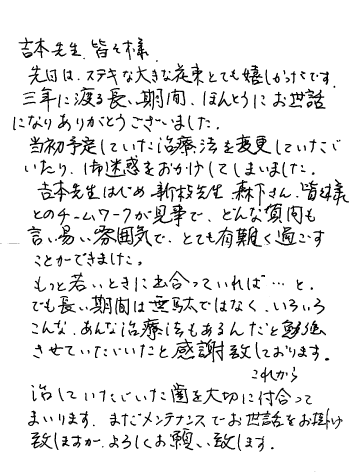 吉本先生、皆々様
先日は、ステキな大きな花束とても嬉しかったです。
三年に渡る長い期間、ほんとうにお世話
になりありがとうございました。
当初予定していた治療法を変更していただ
いたり、御迷惑をおかけしてしまいました。
吉本先生はじめ、新枝先生、森下さん、皆様
とのチームワークが見事で、どんな質問も
言い易い雰囲気で、とても有難く過ごす
ことができました。
もっと若いときに出合っていれば…と。
でも長い期間は無駄ではなく、いろいろ
こんな、あんな治療法もあるんだと勉強
させていただいたと感謝致しております。
これから
治していただいた歯を大切に付合って
まいります。まだメンテナンスでお世話をお掛け
致しますが、よろしくお願い致します。